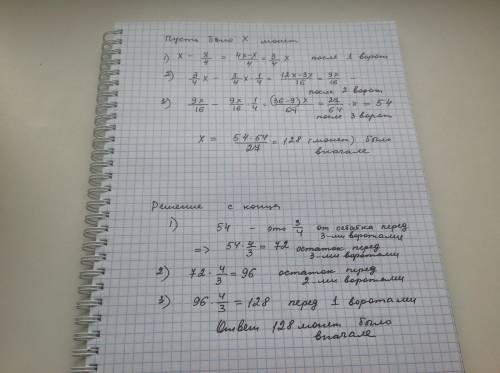 Пусть было x монет
1) x - x/4 = 4x-x/4 = 3/4 x после 1 ворот
2) 3/4 x - 3/4 x · 1/4 = 12x-3x/16 = 9x/16 -
после 2 ворот
3) 9x/16 - 9x/16 · 1/4 = (36-9)x/64 = 27/64 · x = 54
после 3 ворот
x = 54·64/27 = 128 (монет) было
вначале
Решение с конца
1) 54 - это 3/4 от остатка перед
3-ми воротами
=> 54·4/3 = 72 остаток перед
3-ми воротами
2) 72·4/3 = 96 остаток перед
2-ми воротами
3) 96·4/3 = 128 перед 1 воротами
Ответ 128 монет было
вначале